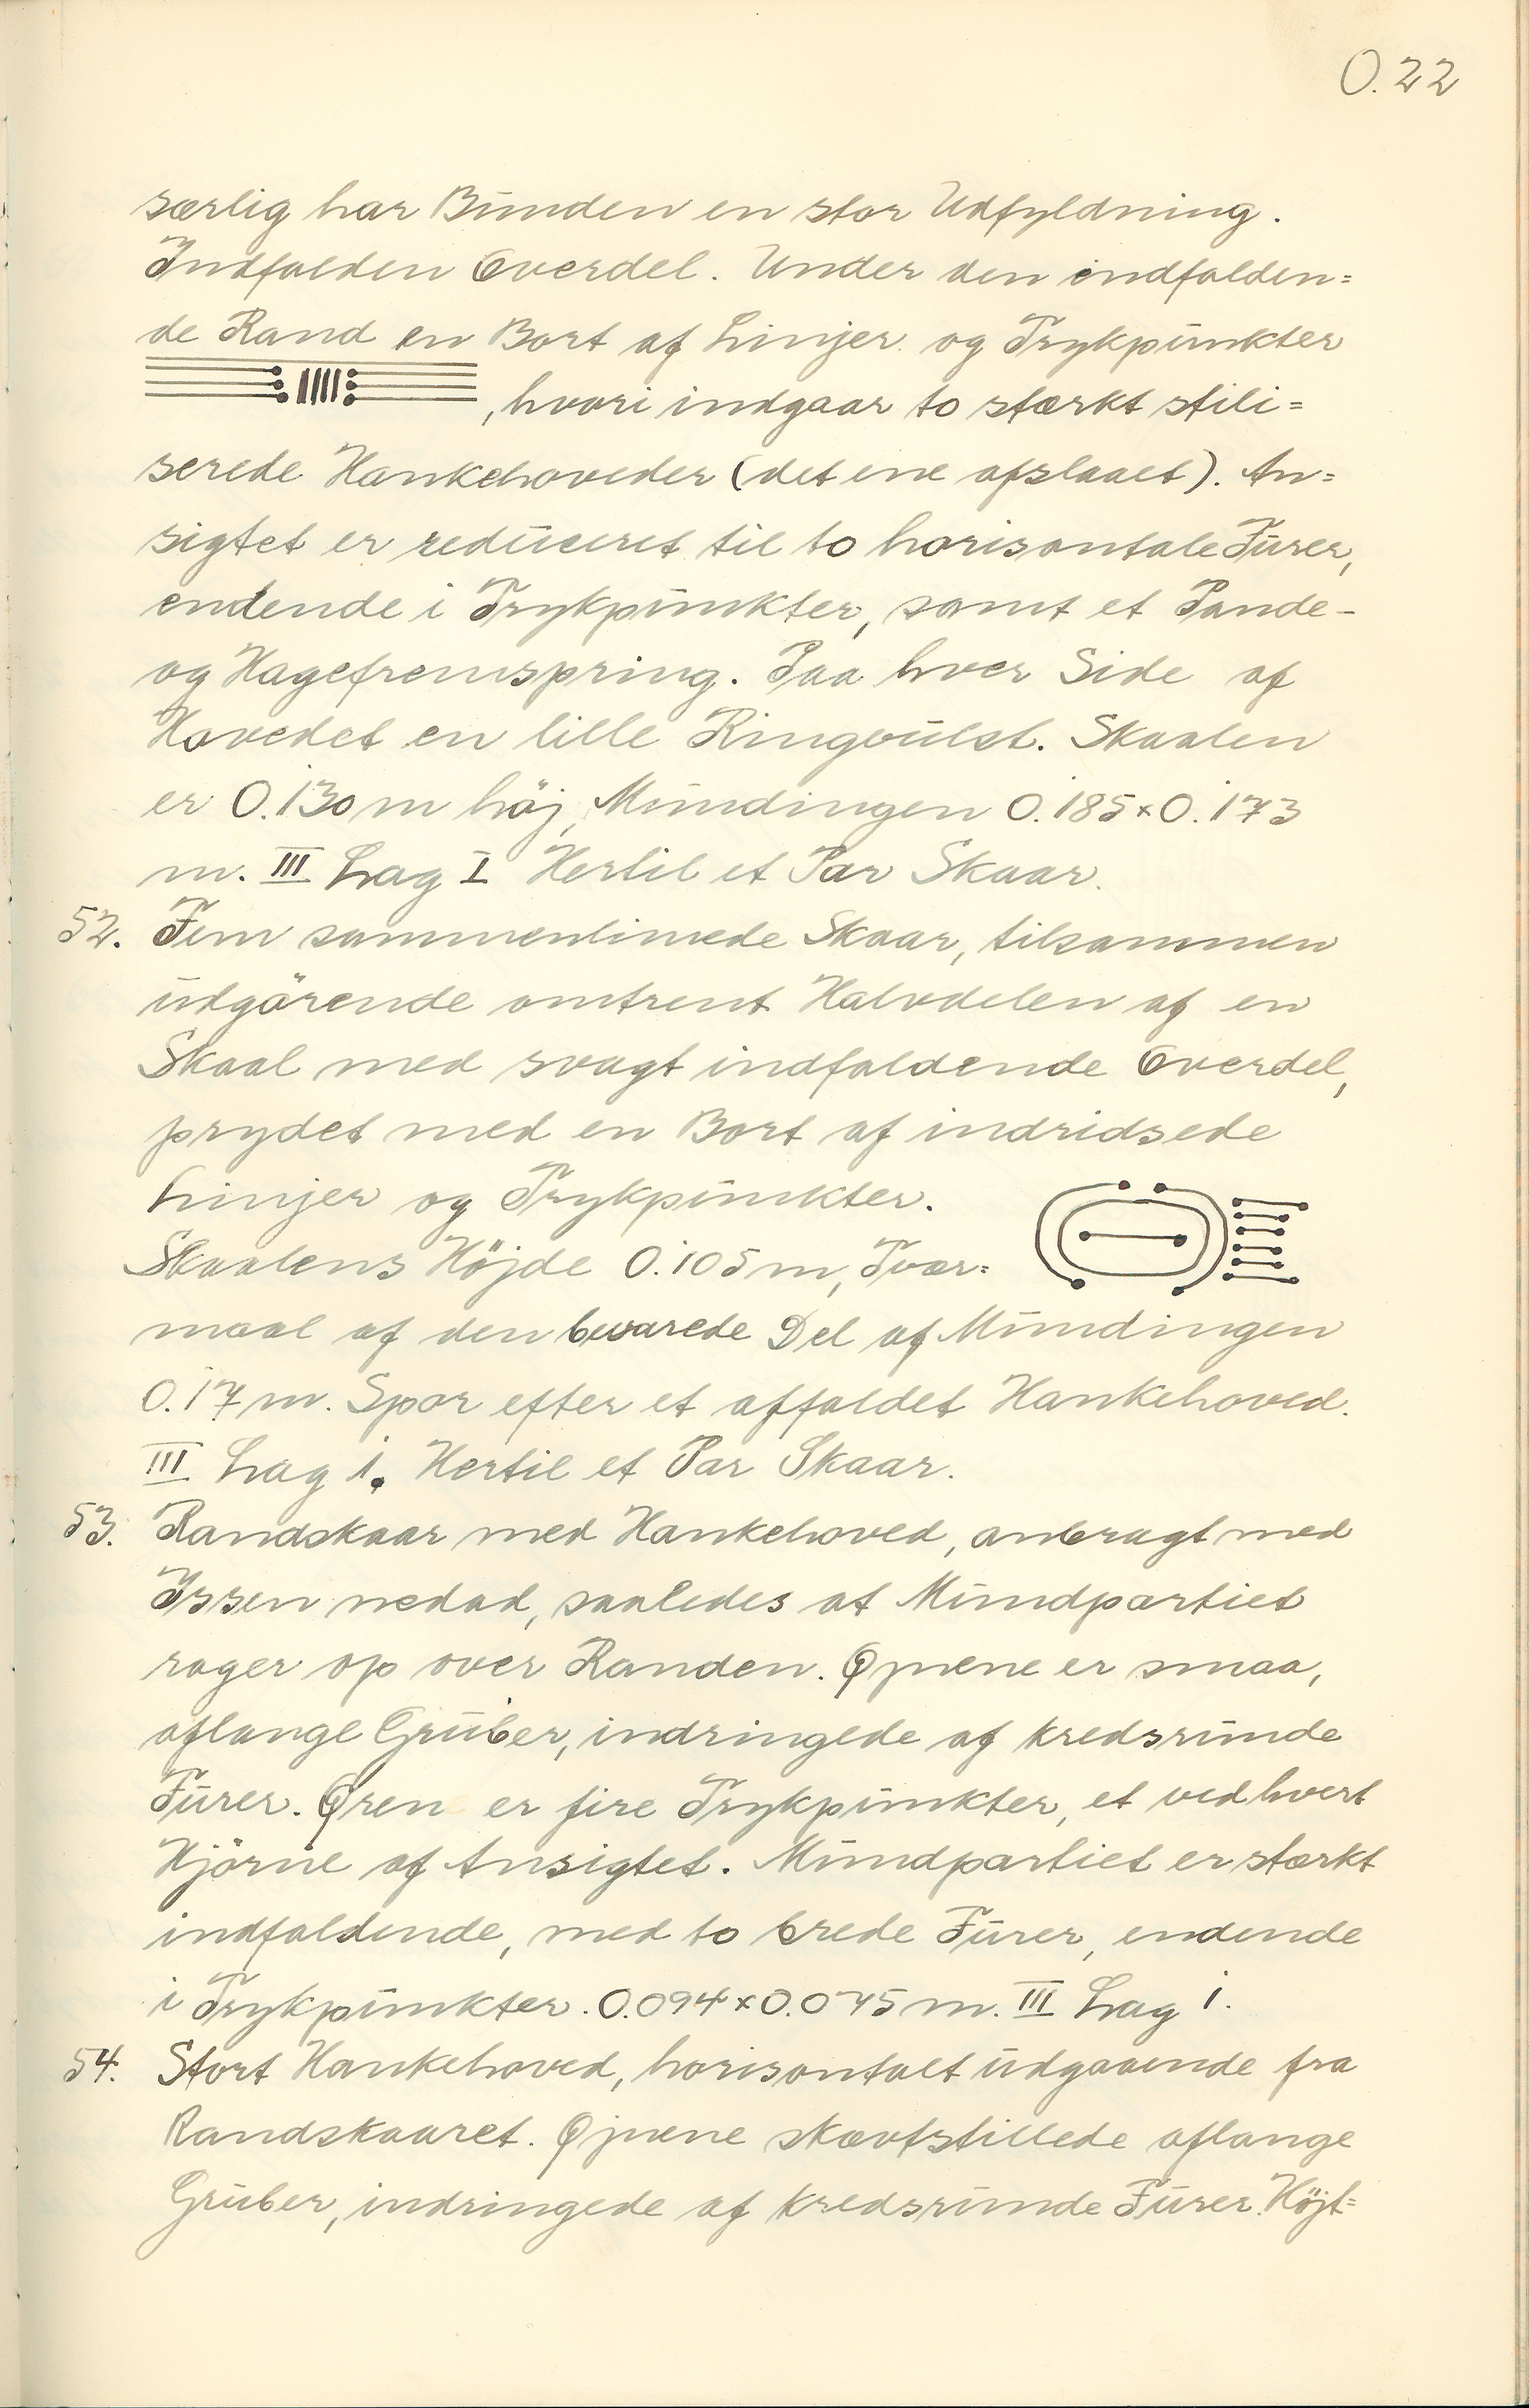 O.22
særlig har Bunden en stor Udfyldning.
Indfalden Overdel. Under den indfalden=
de Rand en Bort af Linjer og Trykpunkter
, hvori indgaar to stærkt stili=
serede Hankehoveder (det ene afslaaet). An=
sigtet er reduceret til to horisontale Furer,
endende i Trykpunkter, samt et Pande-
og Hagefremspring. Paa hver Side af
Hovedet en lille Ringvulst. Skaalen
er 0.130 m höj, Mundingen 0.185×0.173
m. III Lag I Hertil et Par Skaar.
52. Fem sammenlimede Skaar, tilsammen
udgörende omtrent Halvdelen af en
Skaal med svagt indfaldende Overdel,
prydet med en Bort af indridsede
Linjer og Trykpunkter.
Skaalens Höjde 0.105 m, Tvær=
maal af den bevarede Del af Mundingen
0.17 m. Spor efter et affaldet Hankehoved.
III Lag 1. Hertil et Par Skaar.
53. Randskaar med Hankehoved, anbragt med
Issen nedad, saaledes at Mundpartiet
rager op over Randen. Øjnene er smaa,
aflange Gruber, indringede af kredsrunde
Furer. Øren er fire Trykpunkter, et ved hvert
Hjörne af Ansigtet. Mundpartiet er stærkt
indfaldende, med to brede Furer, endende
i Trykpunkter. 0.094×0.075 m. III Lag 1.
54. Stort Hankehoved, horisontalt udgaaende fra
Randskaaret. Øjnene skævtstillede aflange
Gruber, indringede af kredsrunde Furer. Höjt=